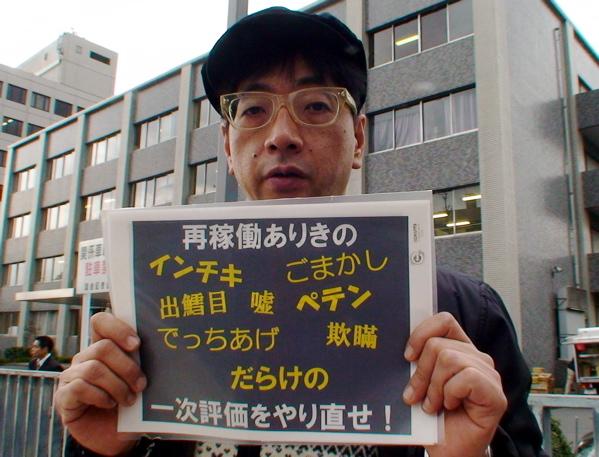 再稼働ありきの
インチキ ごまかし
出鱈目 嘘 ペテン
でっちあげ 欺瞞
だらけの
一次評価をやり直せ！